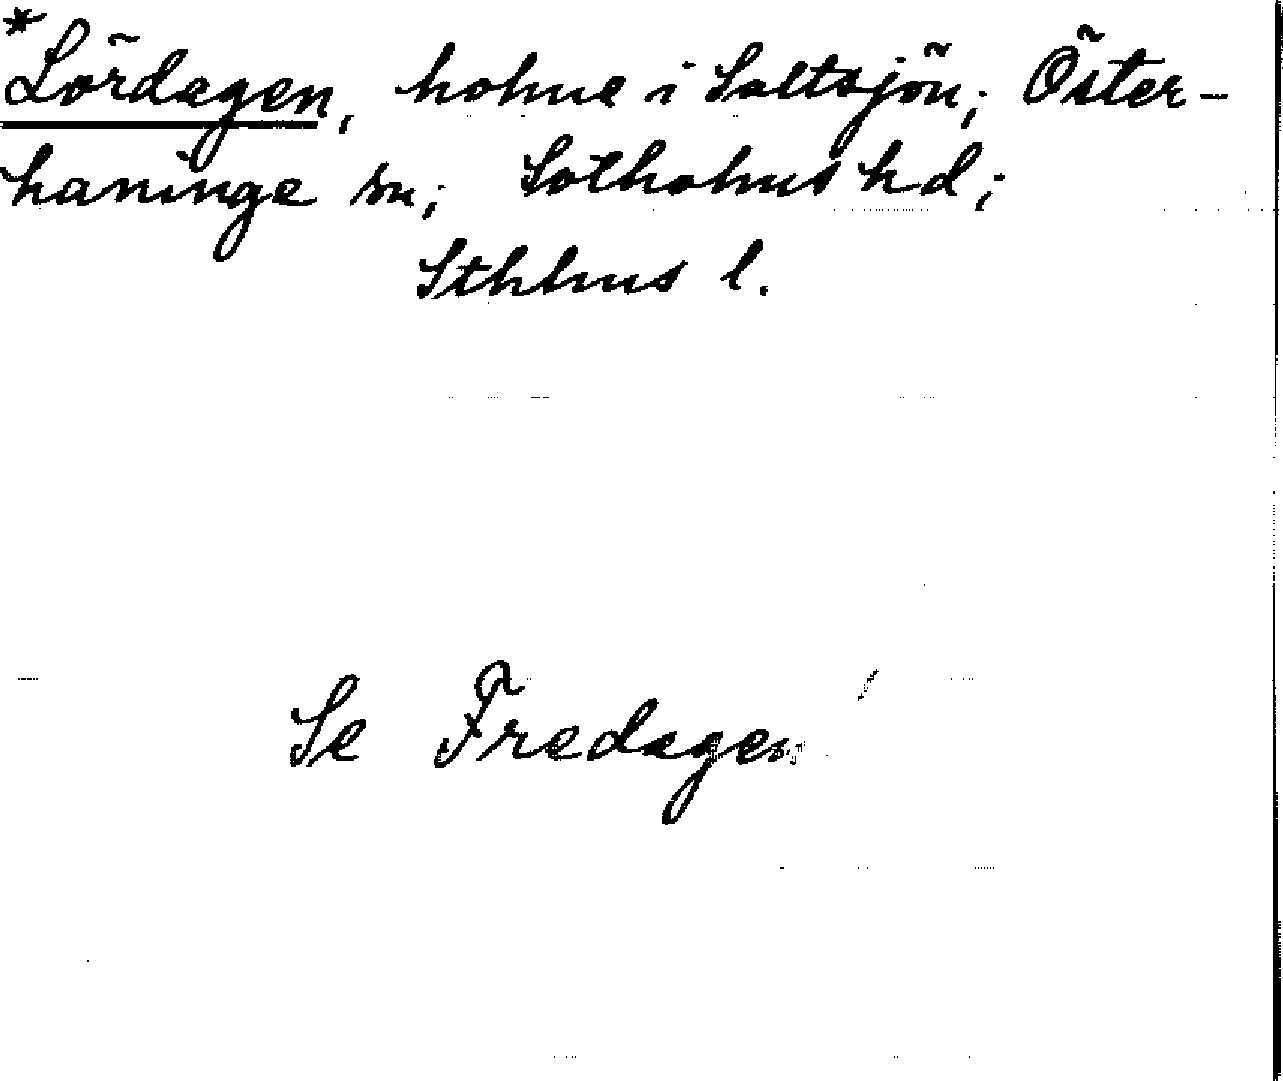 *Lördagen, holme i Saltsjön; Öster-
haninge sn; Sotholms hd;
Sthlms l.
Se Fredagen